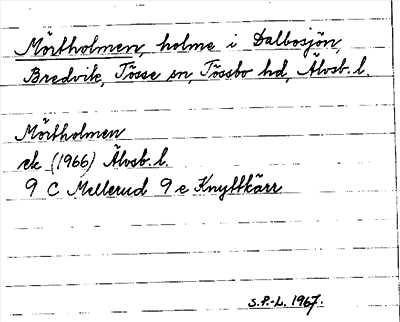 Mörtholmen, holme i Dalbosjön,
Bredvik, Tösse sn, Tössbo hd, Älvsb. l.
Mörtholmen
ek (1966) Älvsb. l.
9 C Mellerud 9 e Knyttkärr
S.P.-L. 1967.